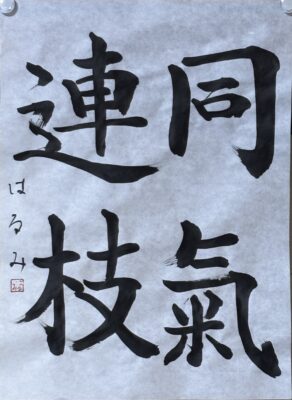 同氣
連枝
はるみ